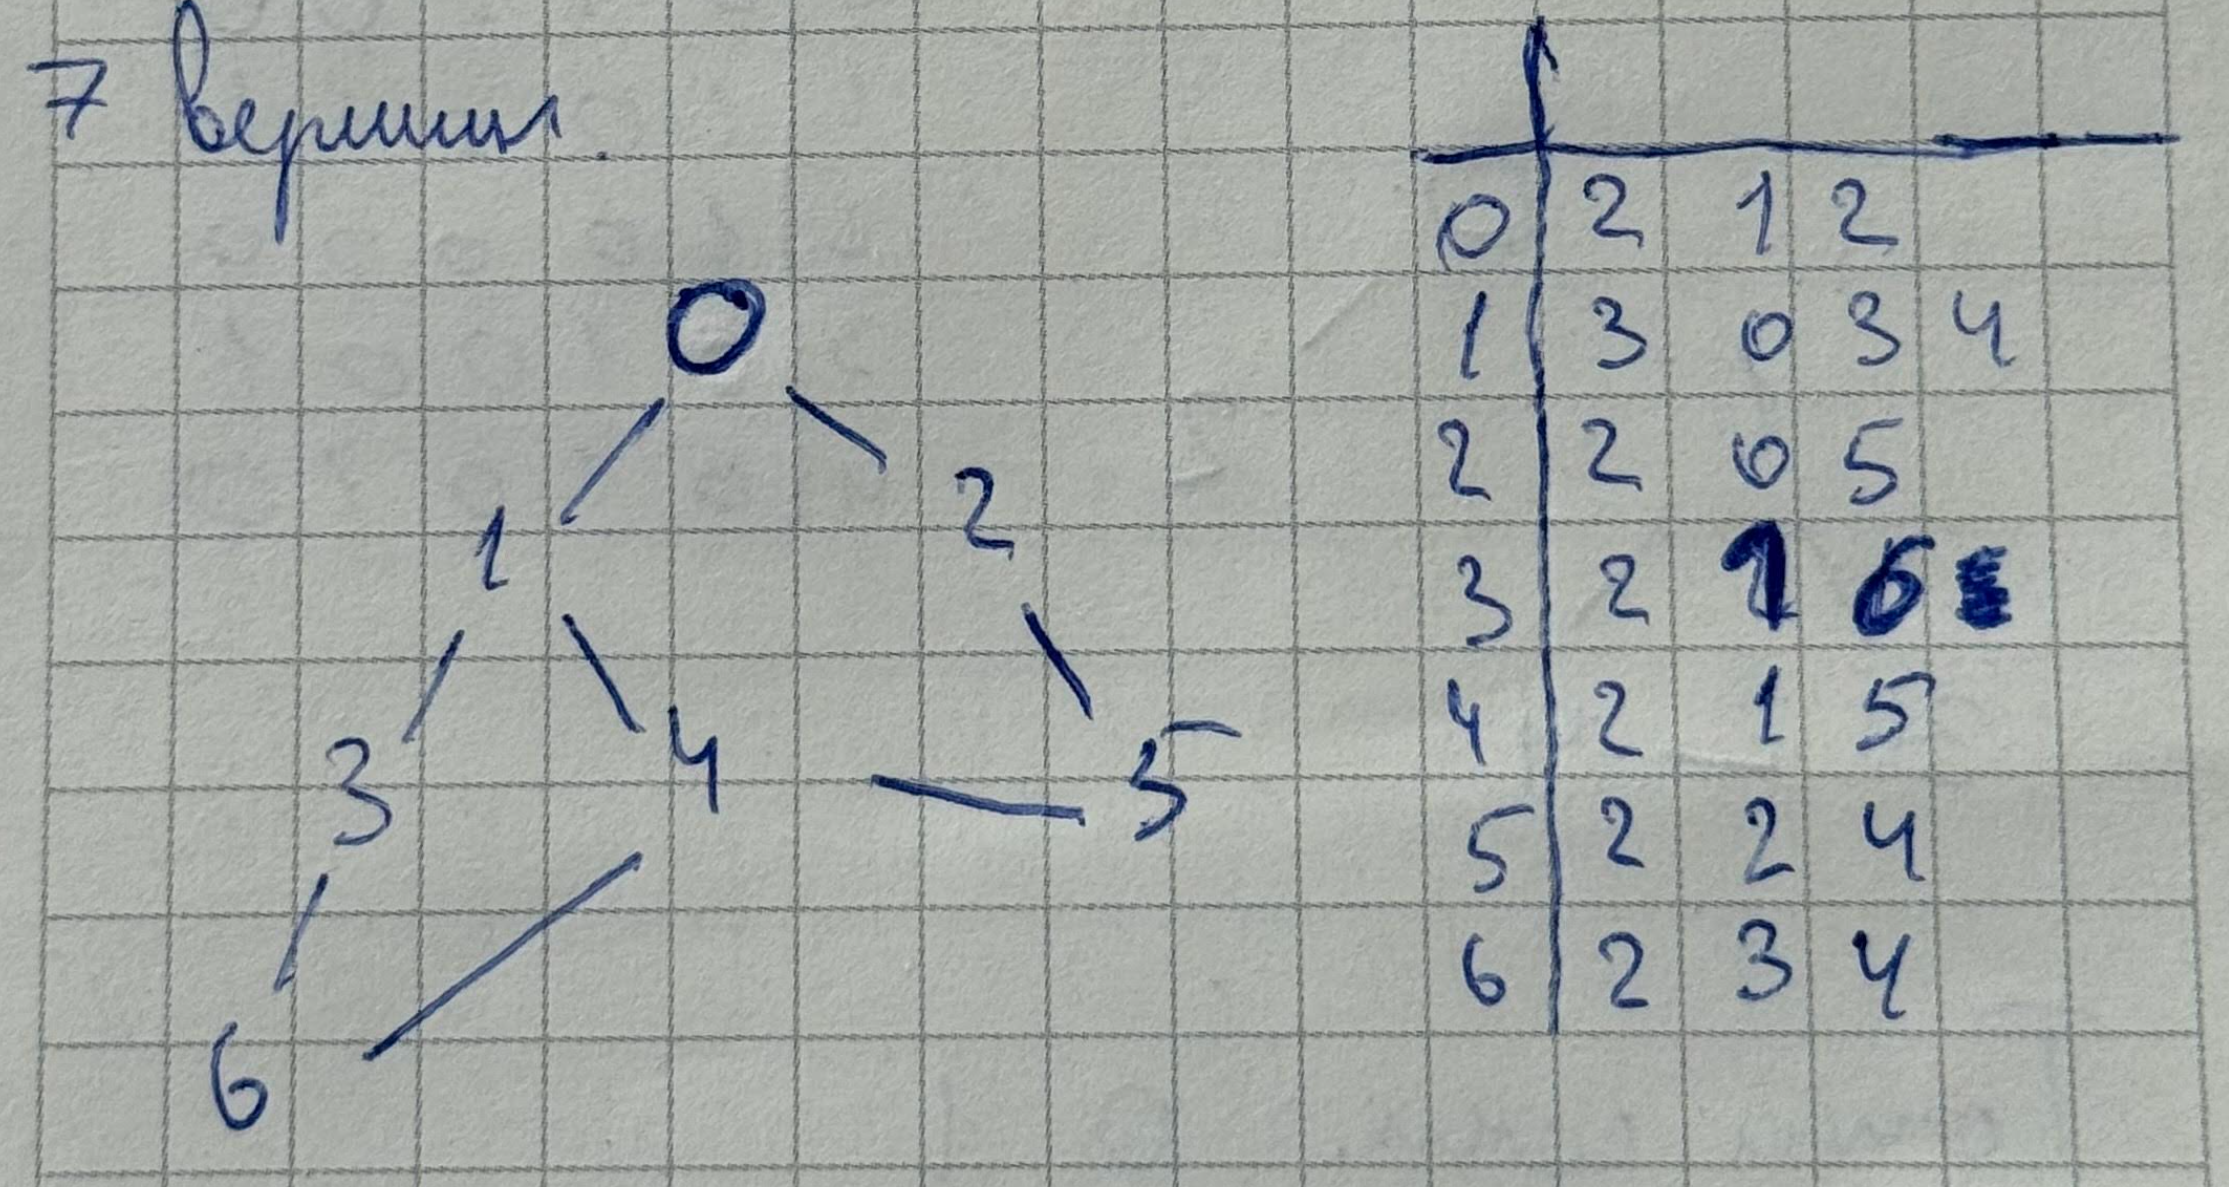 7 вершин.
0
1 2
3 4 5
6
0 2 1 2
1 3 0 3 4
2 2 0 5
3 2 1 6
4 2 1 5
5 2 2 4
6 2 3 4